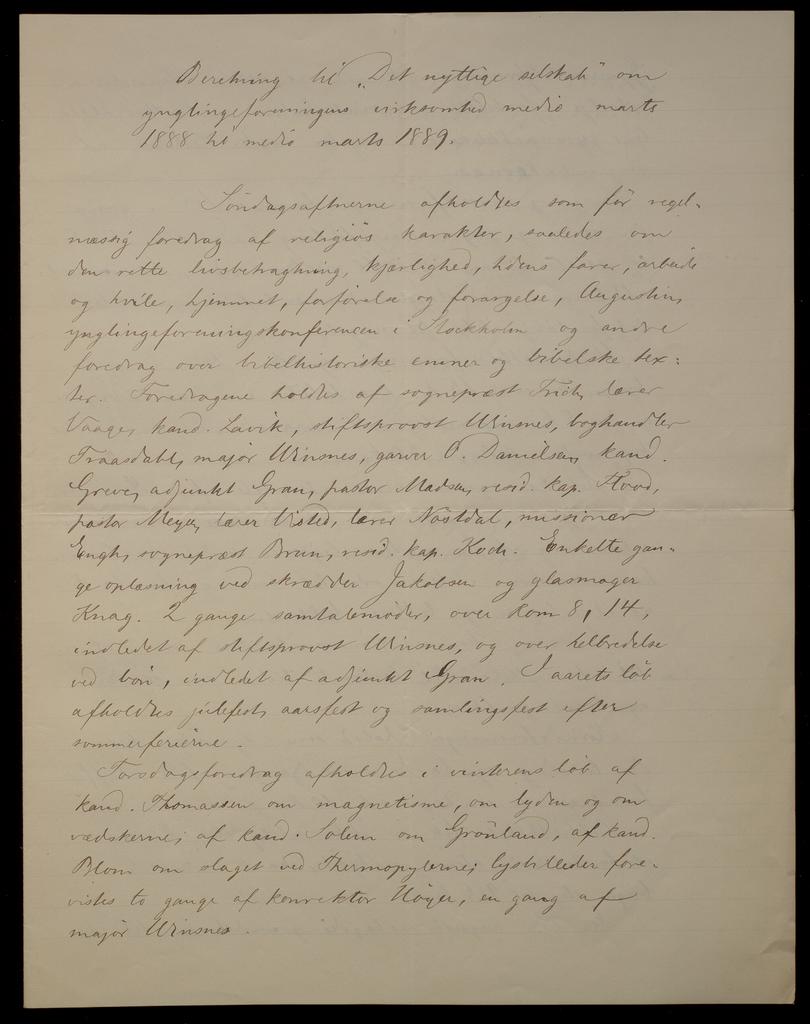 Beretning til „Det nyttige selskab" om
ynglingeforeningens virksomhed medio marts
1888 til medio marts 1889.
Söndagsaftnerne afholdtes som för regel-
mæssig foredrag af religiös karakter, saaledes om
den rette livsbetragtning, kjærlighed, tidens farer, arbeide
og hvile, hjemmet, forförelse og forargelse, Augustin,
ynglingeforeningskonferencen i Stockholm og andre
foredrag over bibelhistoriske emner og bibelske tex-
ter. Foredragene holdtes af sogneprest Frich, lærer
Vaage, kand. Lavik, stiftsprovst Winsnes, boghandler
Traasdahl, major Winsnes, garver O. Danielsen, kand.
Greve, adjunkt Gran, pastor Madsen, resid. kap. Hvod,
pastor Meyer, lærer Visted, lærer Nöstdal, missionær
Engh, sogneprest Brun, resid. kap. Koch. Enkelte gan-
ge oplæsning ved skrædder Jakobsen og glasmager
Knag. 2 gange samtalemöder, over Rom 8, 14,
indledet af stiftsprovst Winsnes, og over helbredelse
ved bön, indledet af adjunkt Gran. I aarets löb
afholdtes julefest, aarsfest og samlingsfest efter
sommerferierne.
Torsdagsforedrag afholdtes i vinterens löb af
kand. Thomassen om magnetisme, om lyden og om
vædskerne; af kand. Solem om Grönland, af kand.
Blom om slaget ved Thermopylerne; lysbilleder fore-
vistes to gange af konrektor Höyer, en gang af
major Winsnes.